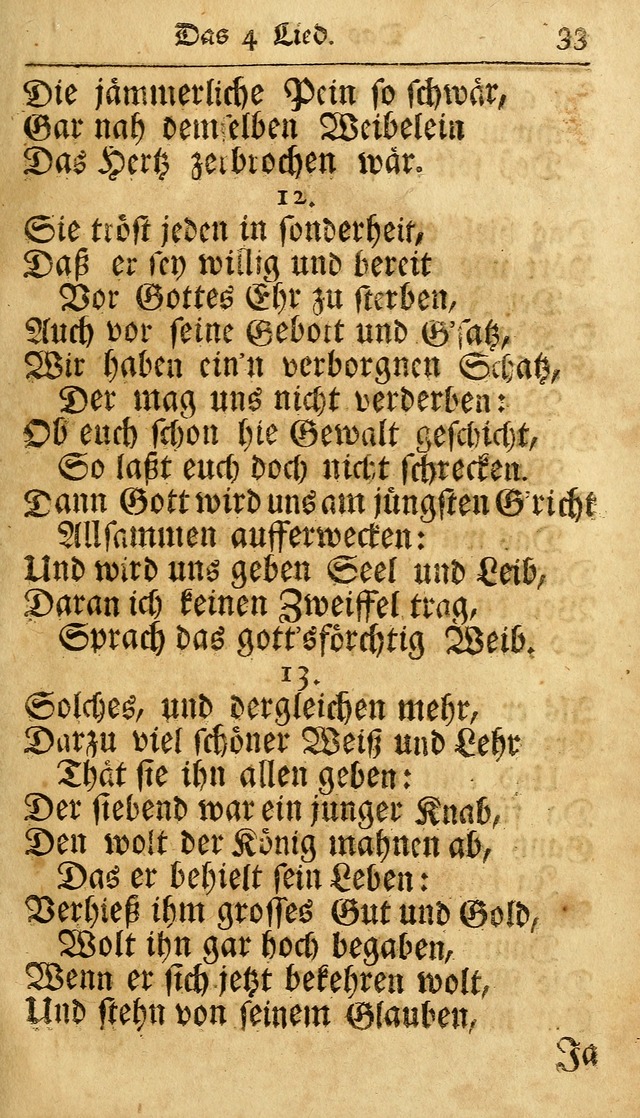 Das 4 Lied. 33
Die jämmerliche Pein so schwär,
Gar nah demselben Weibelein
Das Hertz zerbrochen wär.
12.
Sie tröst jeden in sonderheit,
Daß er sey willig und bereit
Vor Gottes Ehr zu sterben,
Auch vor seine Gebott und G'satz,
Wir haben ein'n verborgnen Schatz,
Der mag uns nicht verderben:
Ob euch schon hie Gewalt geschicht,
So laßt euch doch nicht schrecken.
Dann Gott wird uns am jüngsten G'richt
Allsammen aufferwecken:
Und wird uns geben Seel und Leib,
Daran ich keinen Zweiffel trag,
Sprach das gott'sförchtig Weib.
13.
Solches, und dergleichen mehr,
Darzu viel schöner Weiß und Lehr
Thät sie ihn allen geben:
Der siebend war ein junger Knab,
Den wolt der König mahnen ab,
Das er behielt sein Leben:
Verhieß ihm grosses Gut und Gold,
Wolt ihn gar hoch begaben,
Wenn er sich jetzt bekehren wolt,
Und stehn von seinem Glauben,
Ja